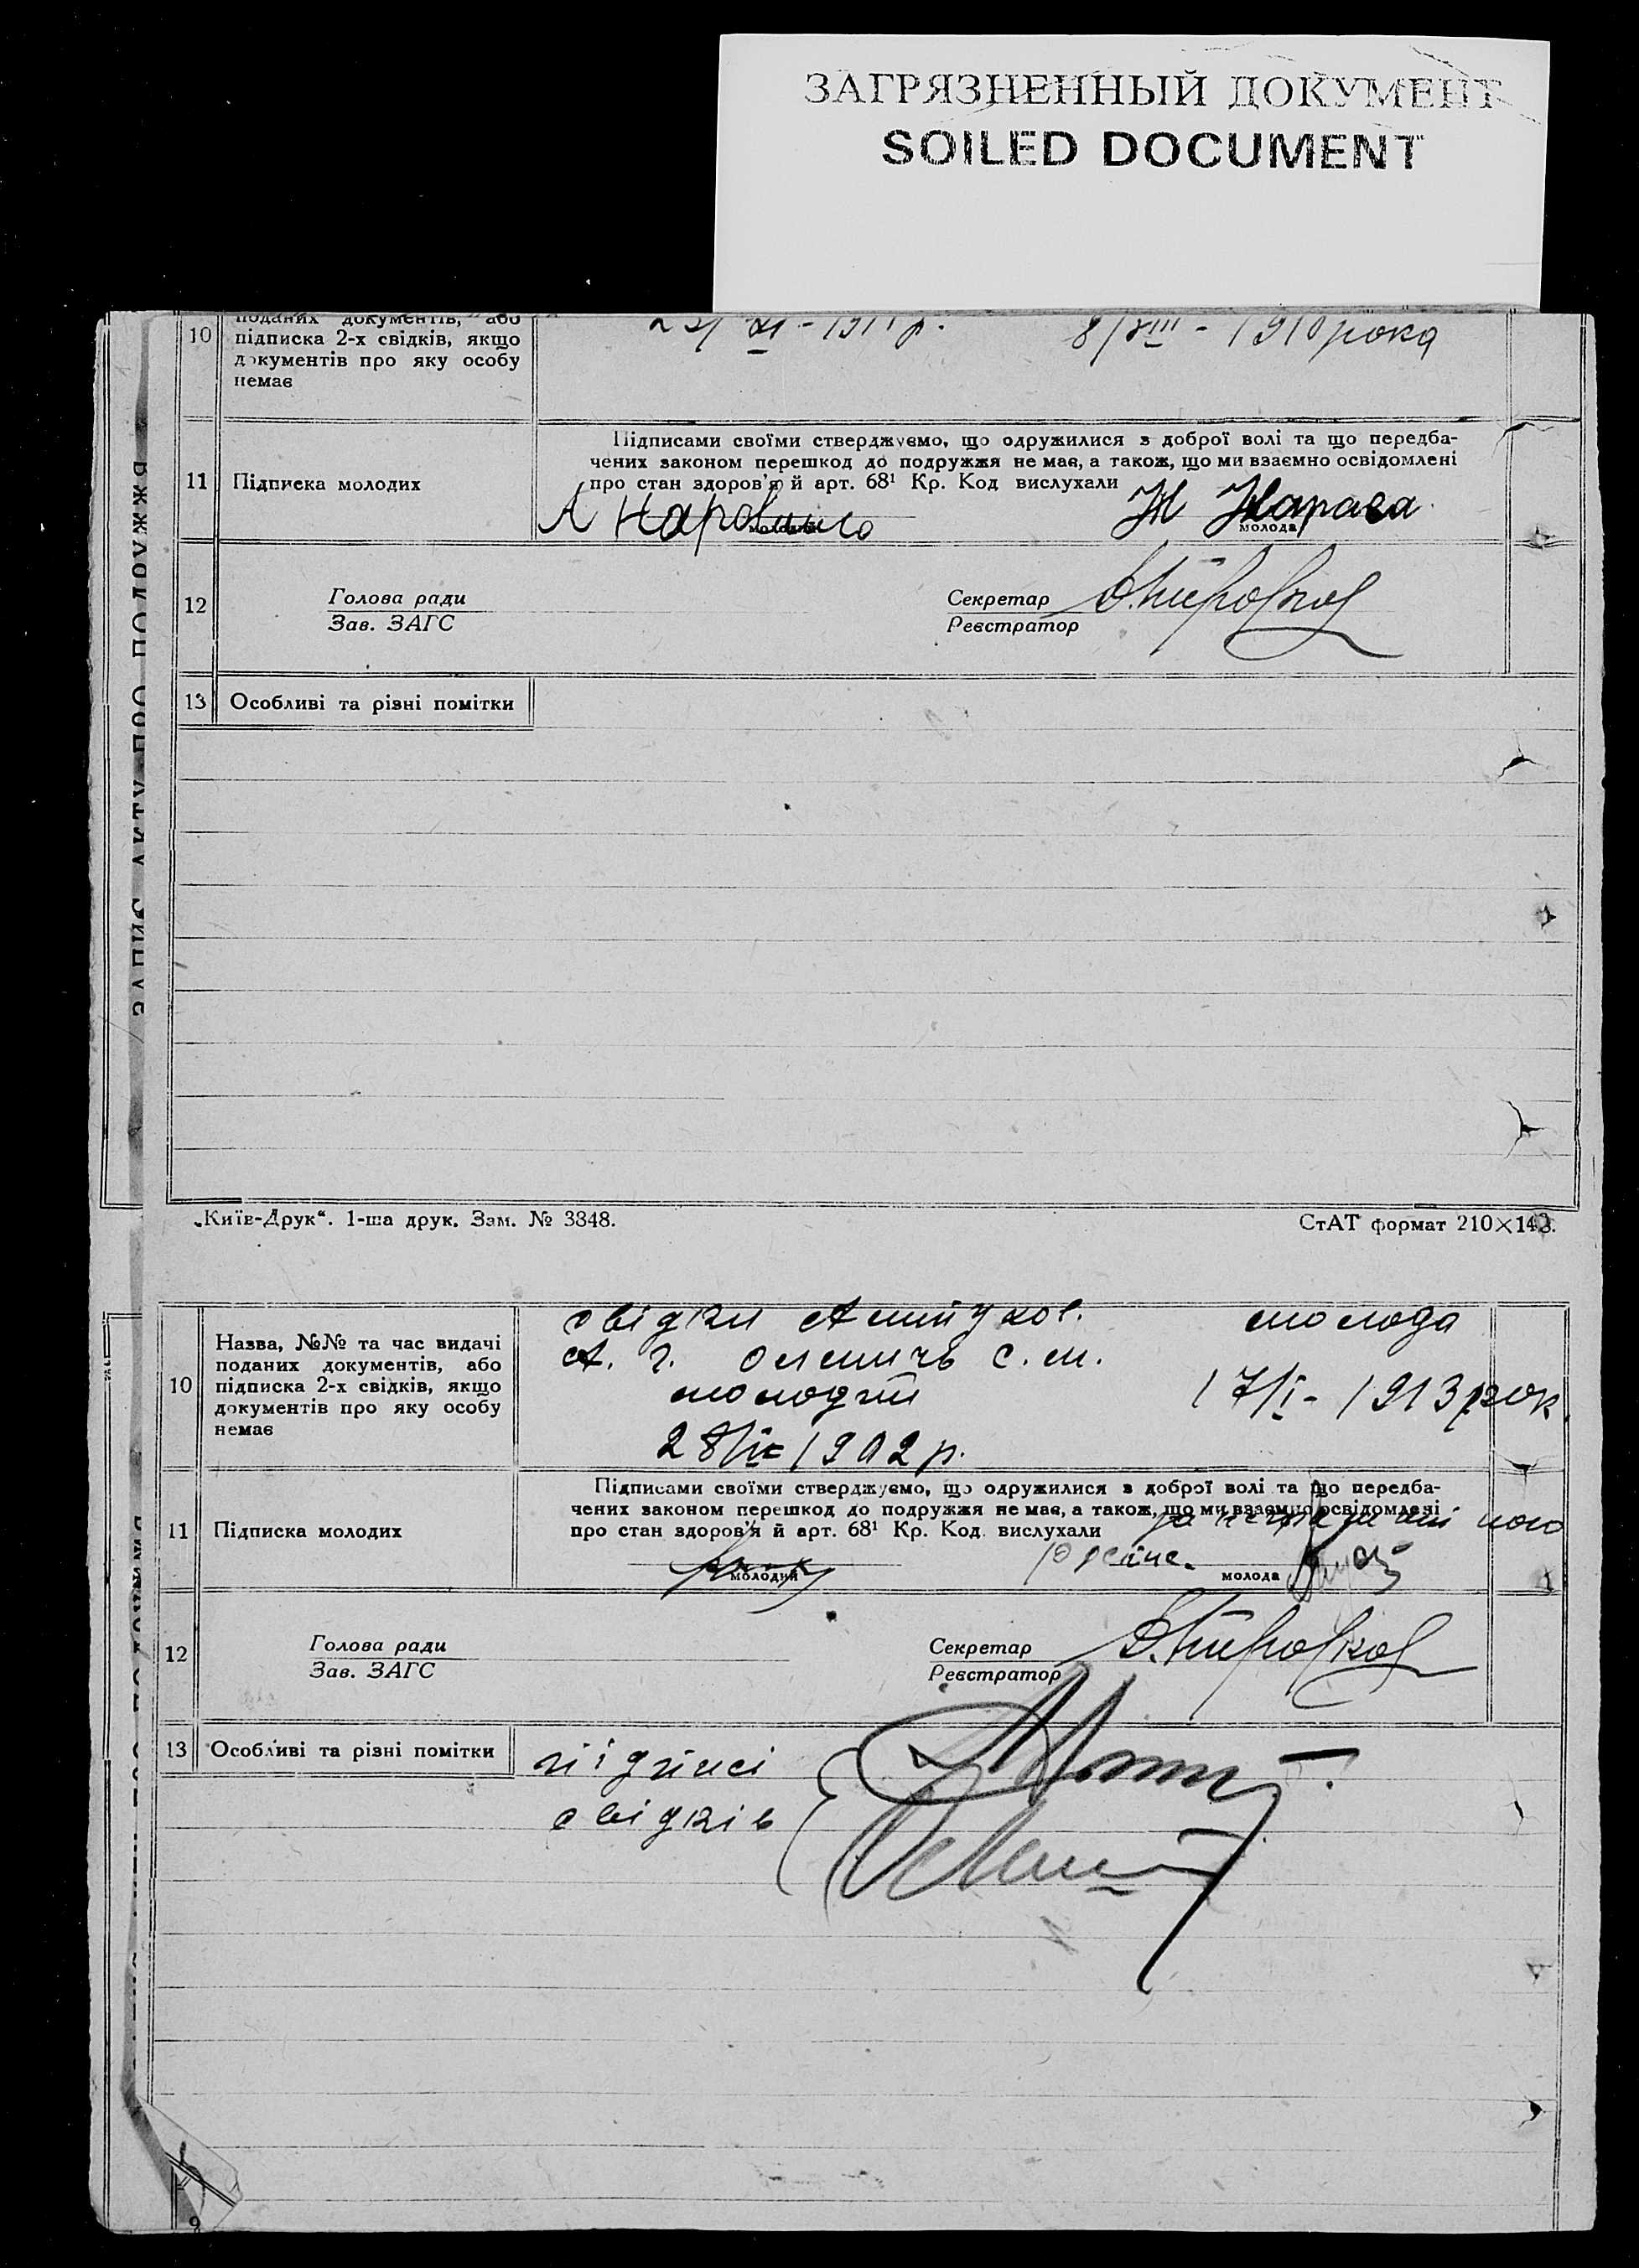 ЗАГРЯЗНЕННЫЙ ДОКУМЕНТ
SOILED DOCUMENT
ЗАПИС АКТУ ПРО ПОДРУЖЖЯ
10
поданих документів, або
підписка 2-х свідків, якщо
документів про яку особу
немає
XI - 1911 р.
8/VIII - 1910 рока
11
Підписка молодих
Підписами своїми стверджуємо, що одружилися з доброї волі та що передба-
чених законом перешкод до подружжя не має, а також, що ми взаємно освідомлені
про стан здоров'я й арт. 68¹ Кр. Код вислухали
А
молодий
молода
12
Голова ради
Зав. ЗАГС
Секретар
Реєстратор
13
Особливі та різні помітки
„Київ-Друк“. 1-ша друк. Зам. № 3348.
СтАТ формат 210×143.
10
Назва, №№ та час видачі
поданих документів, або
підписка 2-х свідків, якщо
документів про яку особу
немає
свідки
А. Г. с. м.
молодий
1902 р.
молода
17/I - 1913 рок
11
Підписка молодих
Підписами своїми стверджуємо, що одружилися з доброї волі та що передба-
чених законом перешкод до подружжя не має, а також, що ми взаємно освідомлені
про стан здоров'я й арт. 68¹ Кр. Код вислухали
молодий
молода
12
Голова ради
Зав. ЗАГС
Секретар
Реєстратор
13
Особливі та різні помітки
підписі
свідків